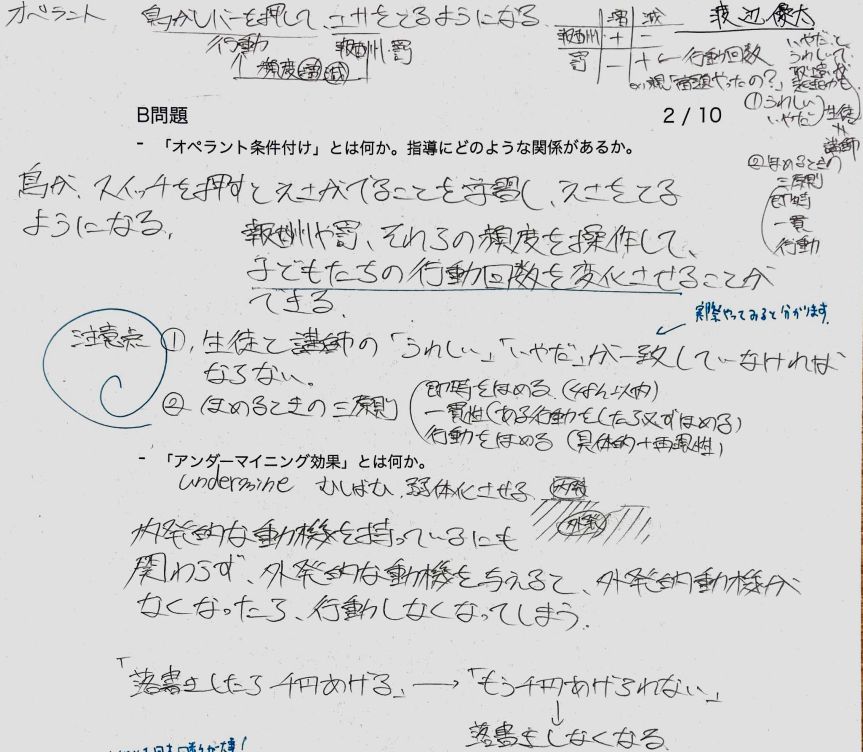 オペラント 鳥がレバーを押して、エサをとるようになる.
行動 報酬・罰
頻度 増 減
増 減
報酬 + −
罰 − + ← 行動回数
いやだ、と、
うれしいで、
①うれしい
いやだ 生徒
=
講師
②ほめるときの
三原則
即時
一貫
行動
B問題 2 / 10
- 「オペラント条件付け」とは何か。指導にどのような関係があるか。
鳥が、スイッチを押すとエサがでることを学習し、エサをとる
ようになる。
報酬や罰、それらの頻度を操作して、
子どもたちの行動回数を変化させることが
できる.
実際やってみると分かります.
注意点 ①, 生徒と講師の「うれしい」「いやだ」が一致していなければ
ならない。
② ほめるときの三原則
即時をほめる
一貫性(ある行動をしたら必ずほめる)
行動をほめる (具体的+再現性)
- 「アンダーマイニング効果」とは何か。
undermine むしばむ, 弱体化させる 内発
外発
内発的な動機を持っているにも
関わらず、外発的な動機を与えると、外発的動機が
なくなったら、行動しなくなってしまう.
「落書きしたら千円あげる」 → 「もう千円あげられない」
↓
落書きしなくなる.